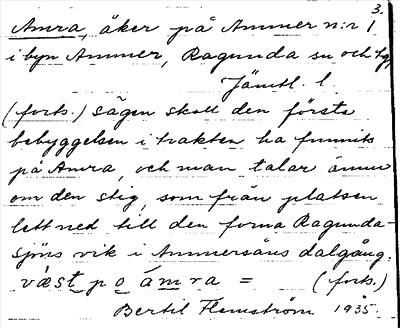 3.
Amra, åker på Ammer n:r 1
i byn Ammer, Ragunda sn och tg,
Jämtl. l.
(forts.) sägen skall den första
bebyggelsen i trakten ha funnits
på Amra, och man talar ännu
om den stig, som från platsen
lett ned till den forna Ragunda-
sjöns vik i Ammersåns dalgång.
väst på ámra = (forts.)
Bertil Flemström 1935.